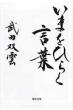 いまをひらく
言葉
武田双雲